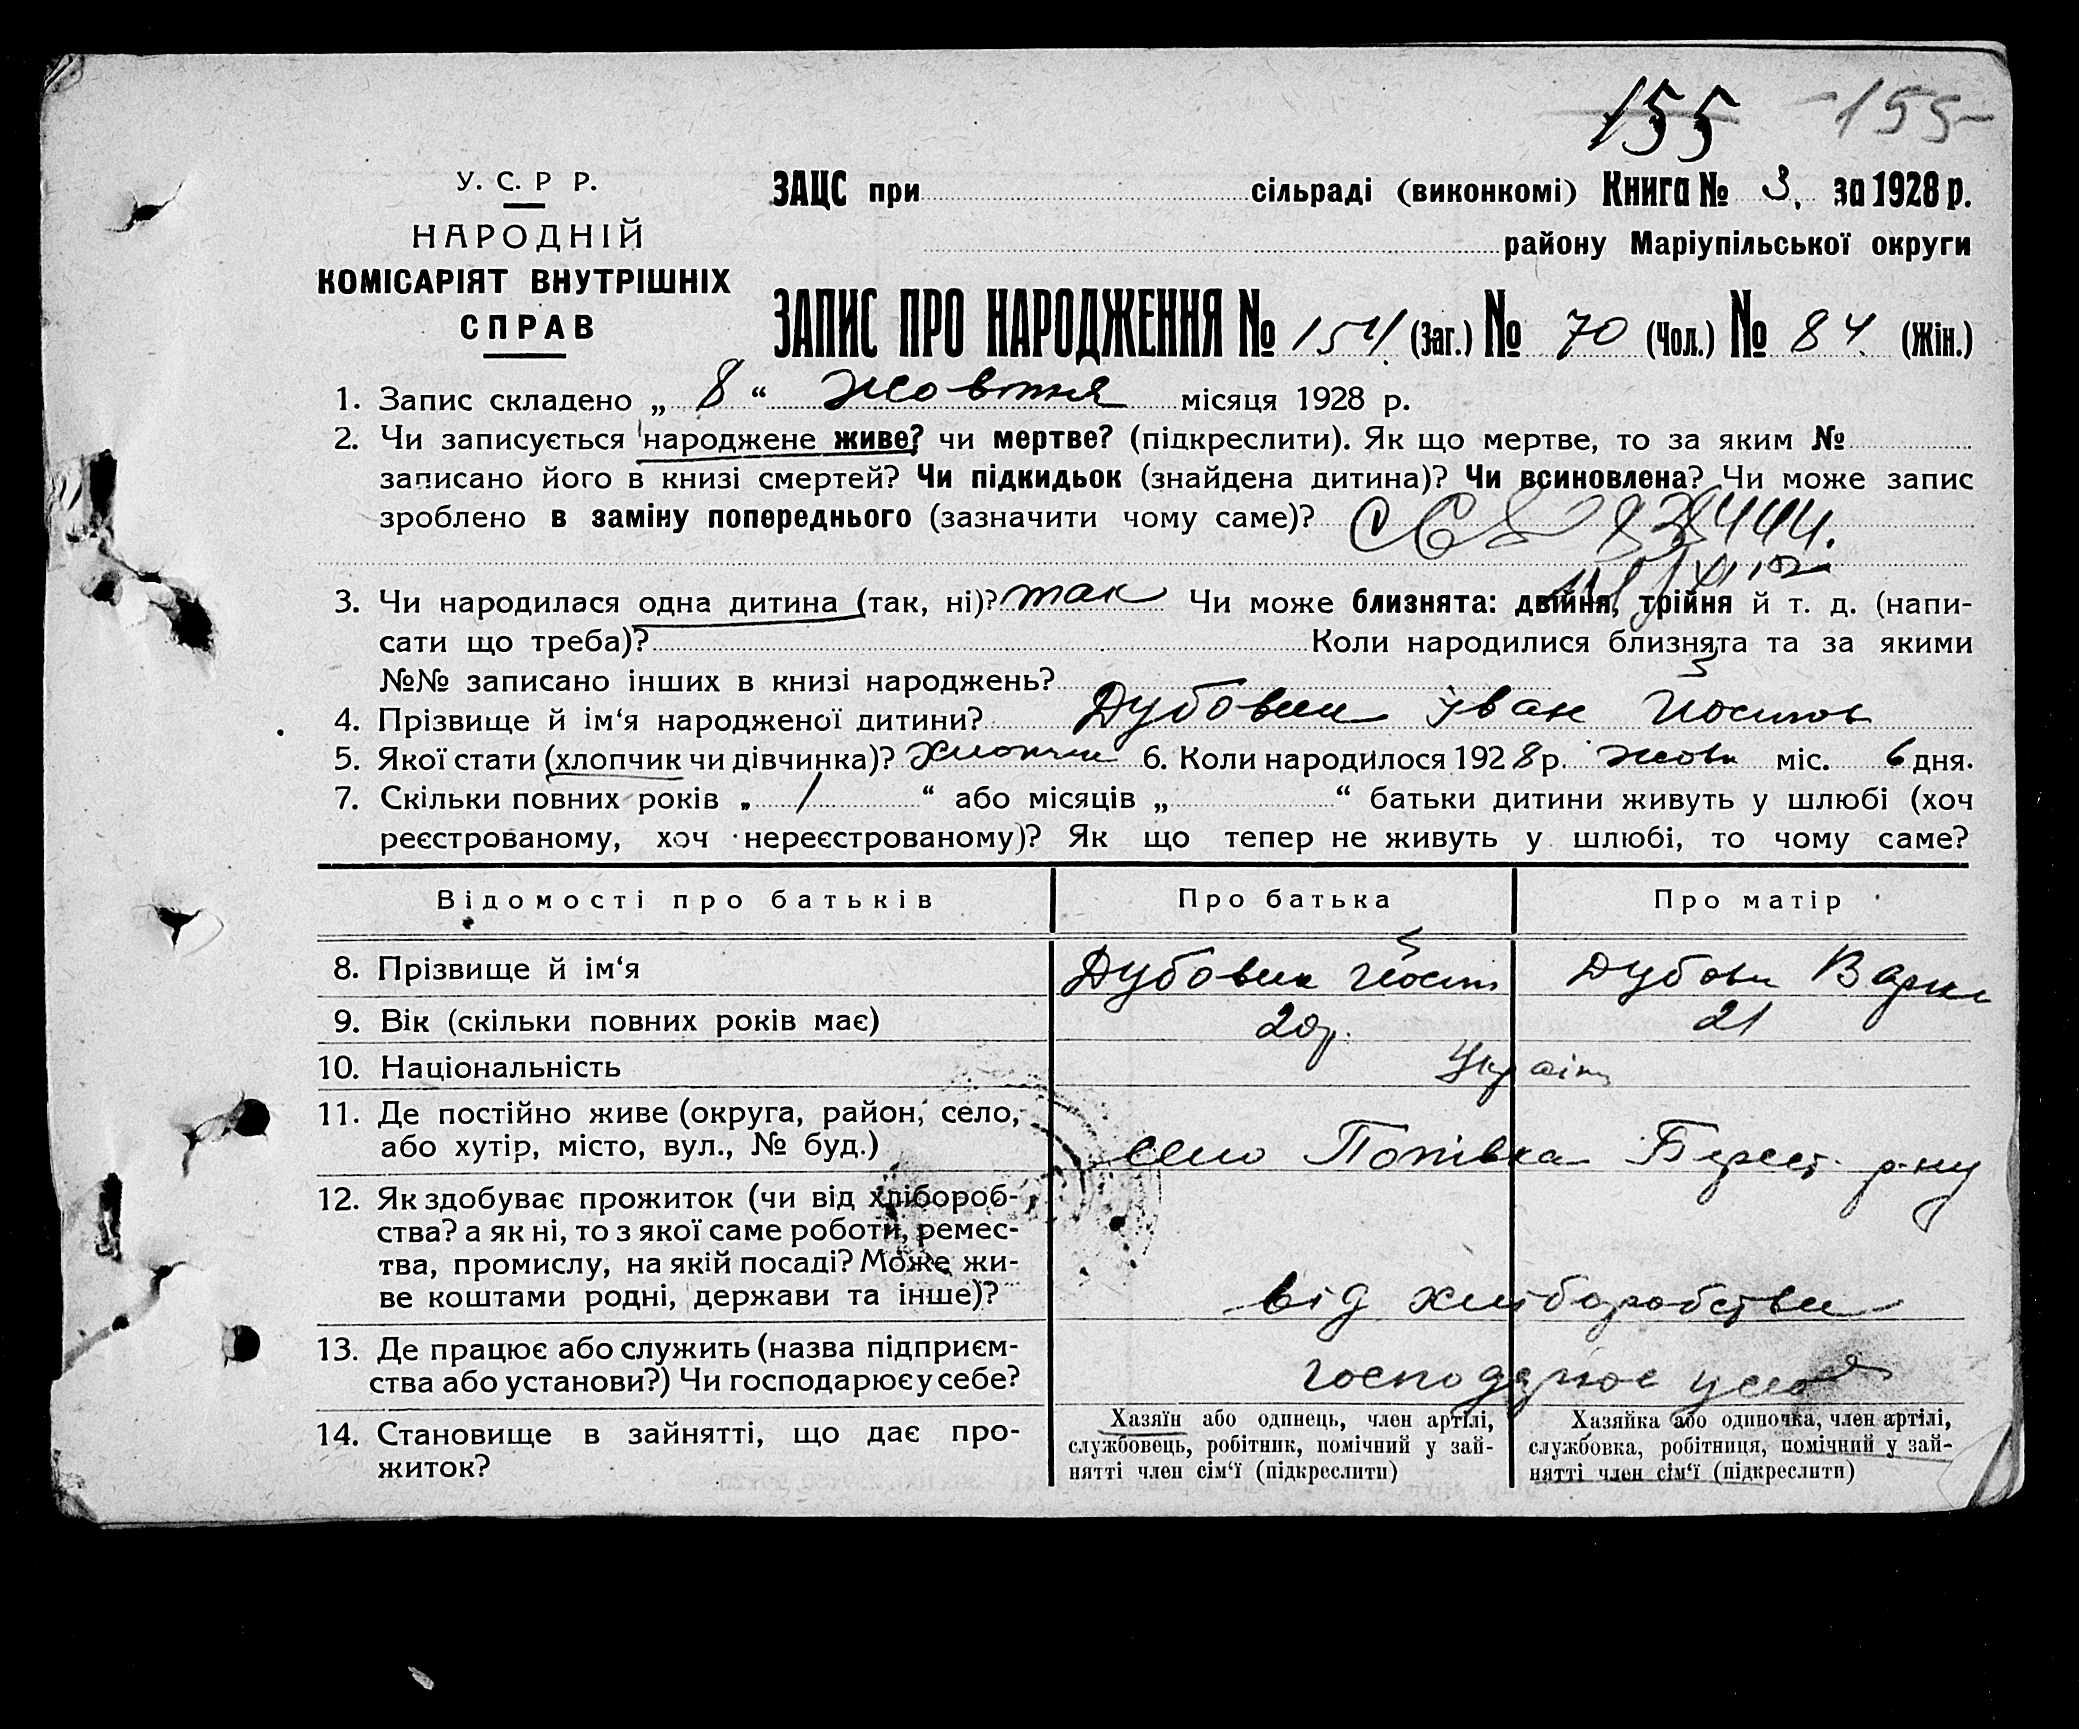 155 -155-
У. С. Р Р.
НАРОДНІЙ
КОМІСАРІЯТ ВНУТРІШНІХ
СПРАВ
ЗАЦС при сільраді (виконкомі) Книга № 3. за 1928 р.
району Маріупільської округи
ЗАПИС ПРО НАРОДЖЕННЯ № 154 (Заг.) № 70 (Чол.) № 84 (Жін.)
1. Запис складено „ 8 “ жовтня місяця 1928 р.
2. Чи записується народжене живе? чи мертве? (підкреслити). Як що мертве, то за яким №
записано його в книзі смертей? Чи підкидьок (знайдена дитина)? Чи всиновлена? Чи може запис
зроблено в заміну попереднього (зазначити чому саме)?
3. Чи народилася одна дитина (так, ні)? так Чи може близнята: двійня, трійня й т. д. (напи-
сати що треба)? Коли народилися близнята та за якими
№№ записано інших в книзі народжень?
4. Прізвище й ім‘я народженої дитини? Дубовик Іван Йосипов
5. Якої стати (хлопчик чи дівчинка)? хлопчик 6. Коли народилося 1928 р. жовт міс. 6 дня.
7. Скільки повних років „ 1 “ або місяців „ “ батьки дитини живуть у шлюбі (хоч
реєстрованому, хоч нереєстрованому)? Як що тепер не живуть у шлюбі, то чому саме?
Відомості про батьків Про батька Про матір
8. Прізвище й ім‘я Дубовик Йосип Дубови
9. Вік (скільки повних років має) 20 р. 21
10. Національність Україн
11. Де постійно живе (округа, район, село,
або хутір, місто, вул., № буд.) село Попівка Берест. р-ну
12. Як здобуває прожиток (чи від хлібороб-
ства? а як ні, то з якої саме роботи, ремес-
тва, промислу, на якій посаді? Може жи-
ве коштами родні, держави та інше)? від хліборобства
13. Де працює або служить (назва підприєм-
ства або установи?) Чи господарює у себе? господарює у себе
14. Становище в зайнятті, що дає про-
житок?
Хазяїн або одинець, член артілі,
службовець, робітник, помічний у зай-
нятті член сім‘ї (підкреслити)
Хазяйка або одиночка, член артілі,
службовка, робітниця, помічний у зай-
нятті член сім‘ї (підкреслити)